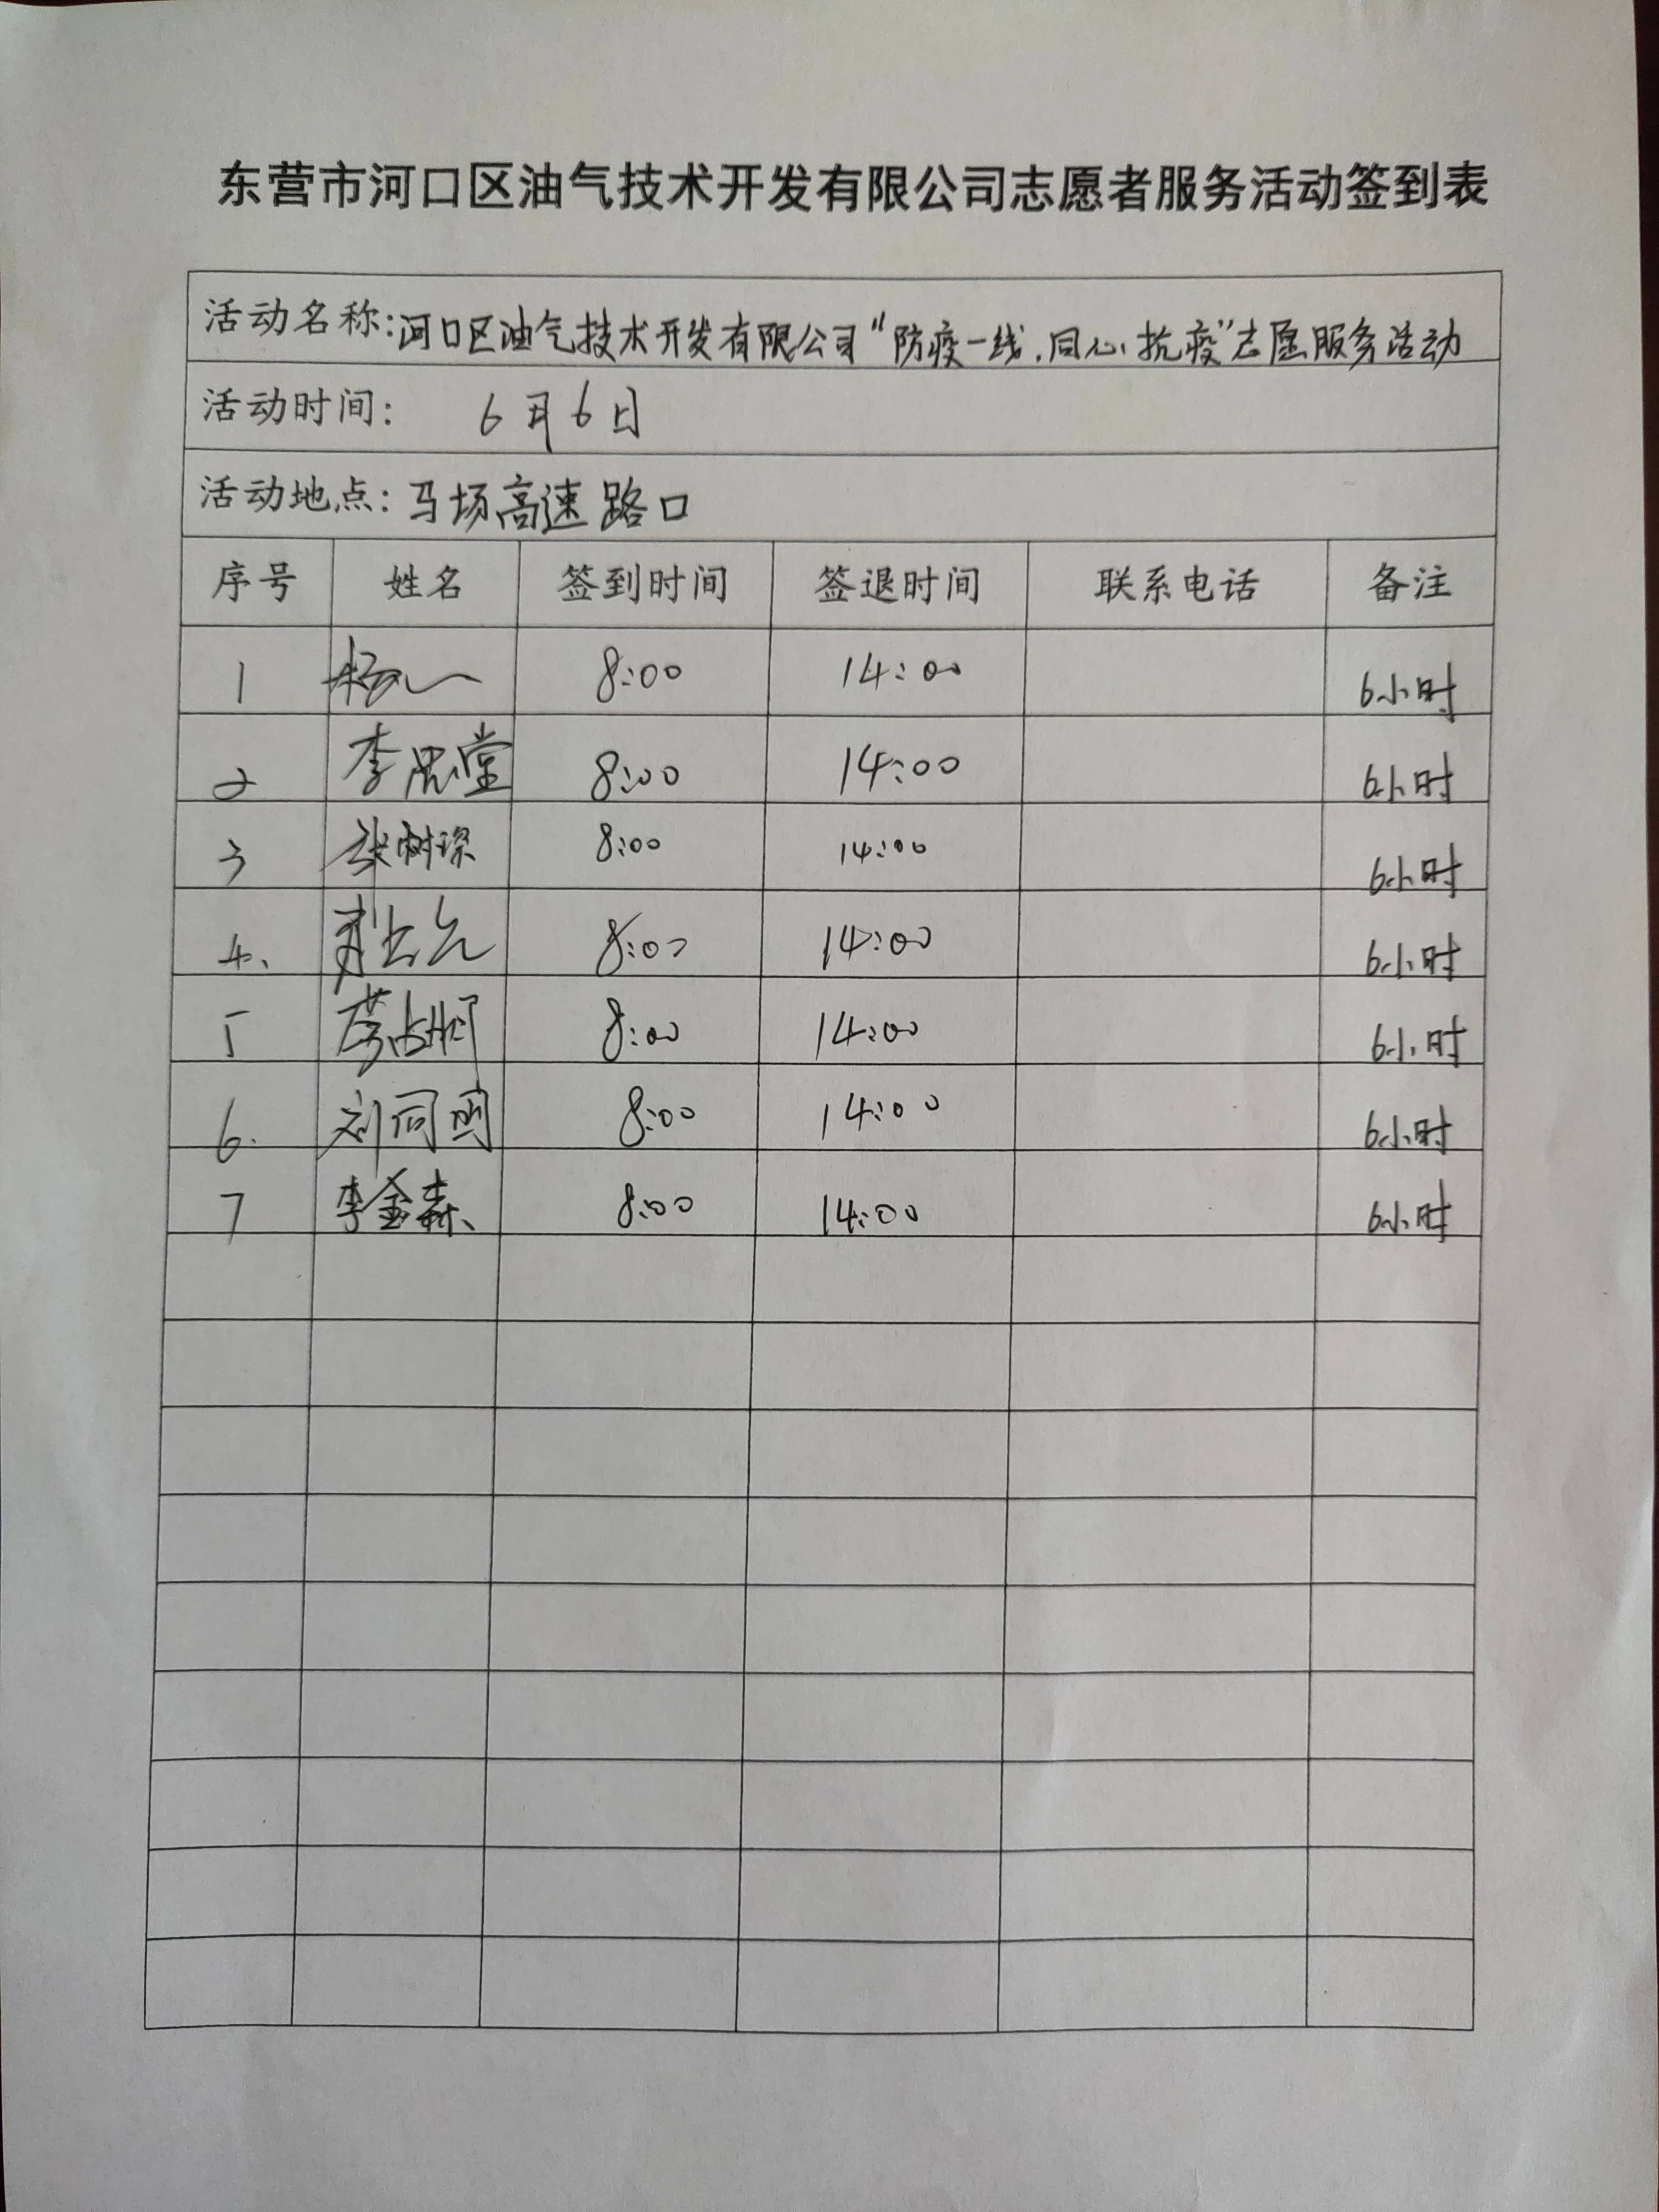 东营市河口区油气技术开发有限公司志愿者服务活动签到表
活动名称:河口区油气技术开发有限公司"防疫一线,同心抗疫"志愿服务活动
活动时间: 6月6日
活动地点:马场高速路口
序号 姓名 签到时间 签退时间 联系电话 备注
1 8:00 14:00 6小时
2 李忠堂 8:00 14:00 6小时
3 张树琛 8:00 14:00 6小时
4. 8:00 14:00 6小时
5 8:00 14:00 6小时
6. 8:00 14:00 6小时
7 李金森 8:00 14:00 6小时